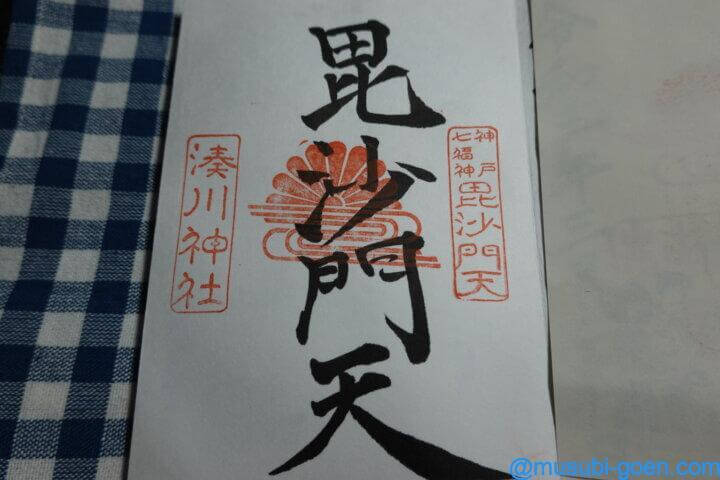 神戸
七福神
毘沙門天
毘沙門天
湊川神社
@musubi-goen.com